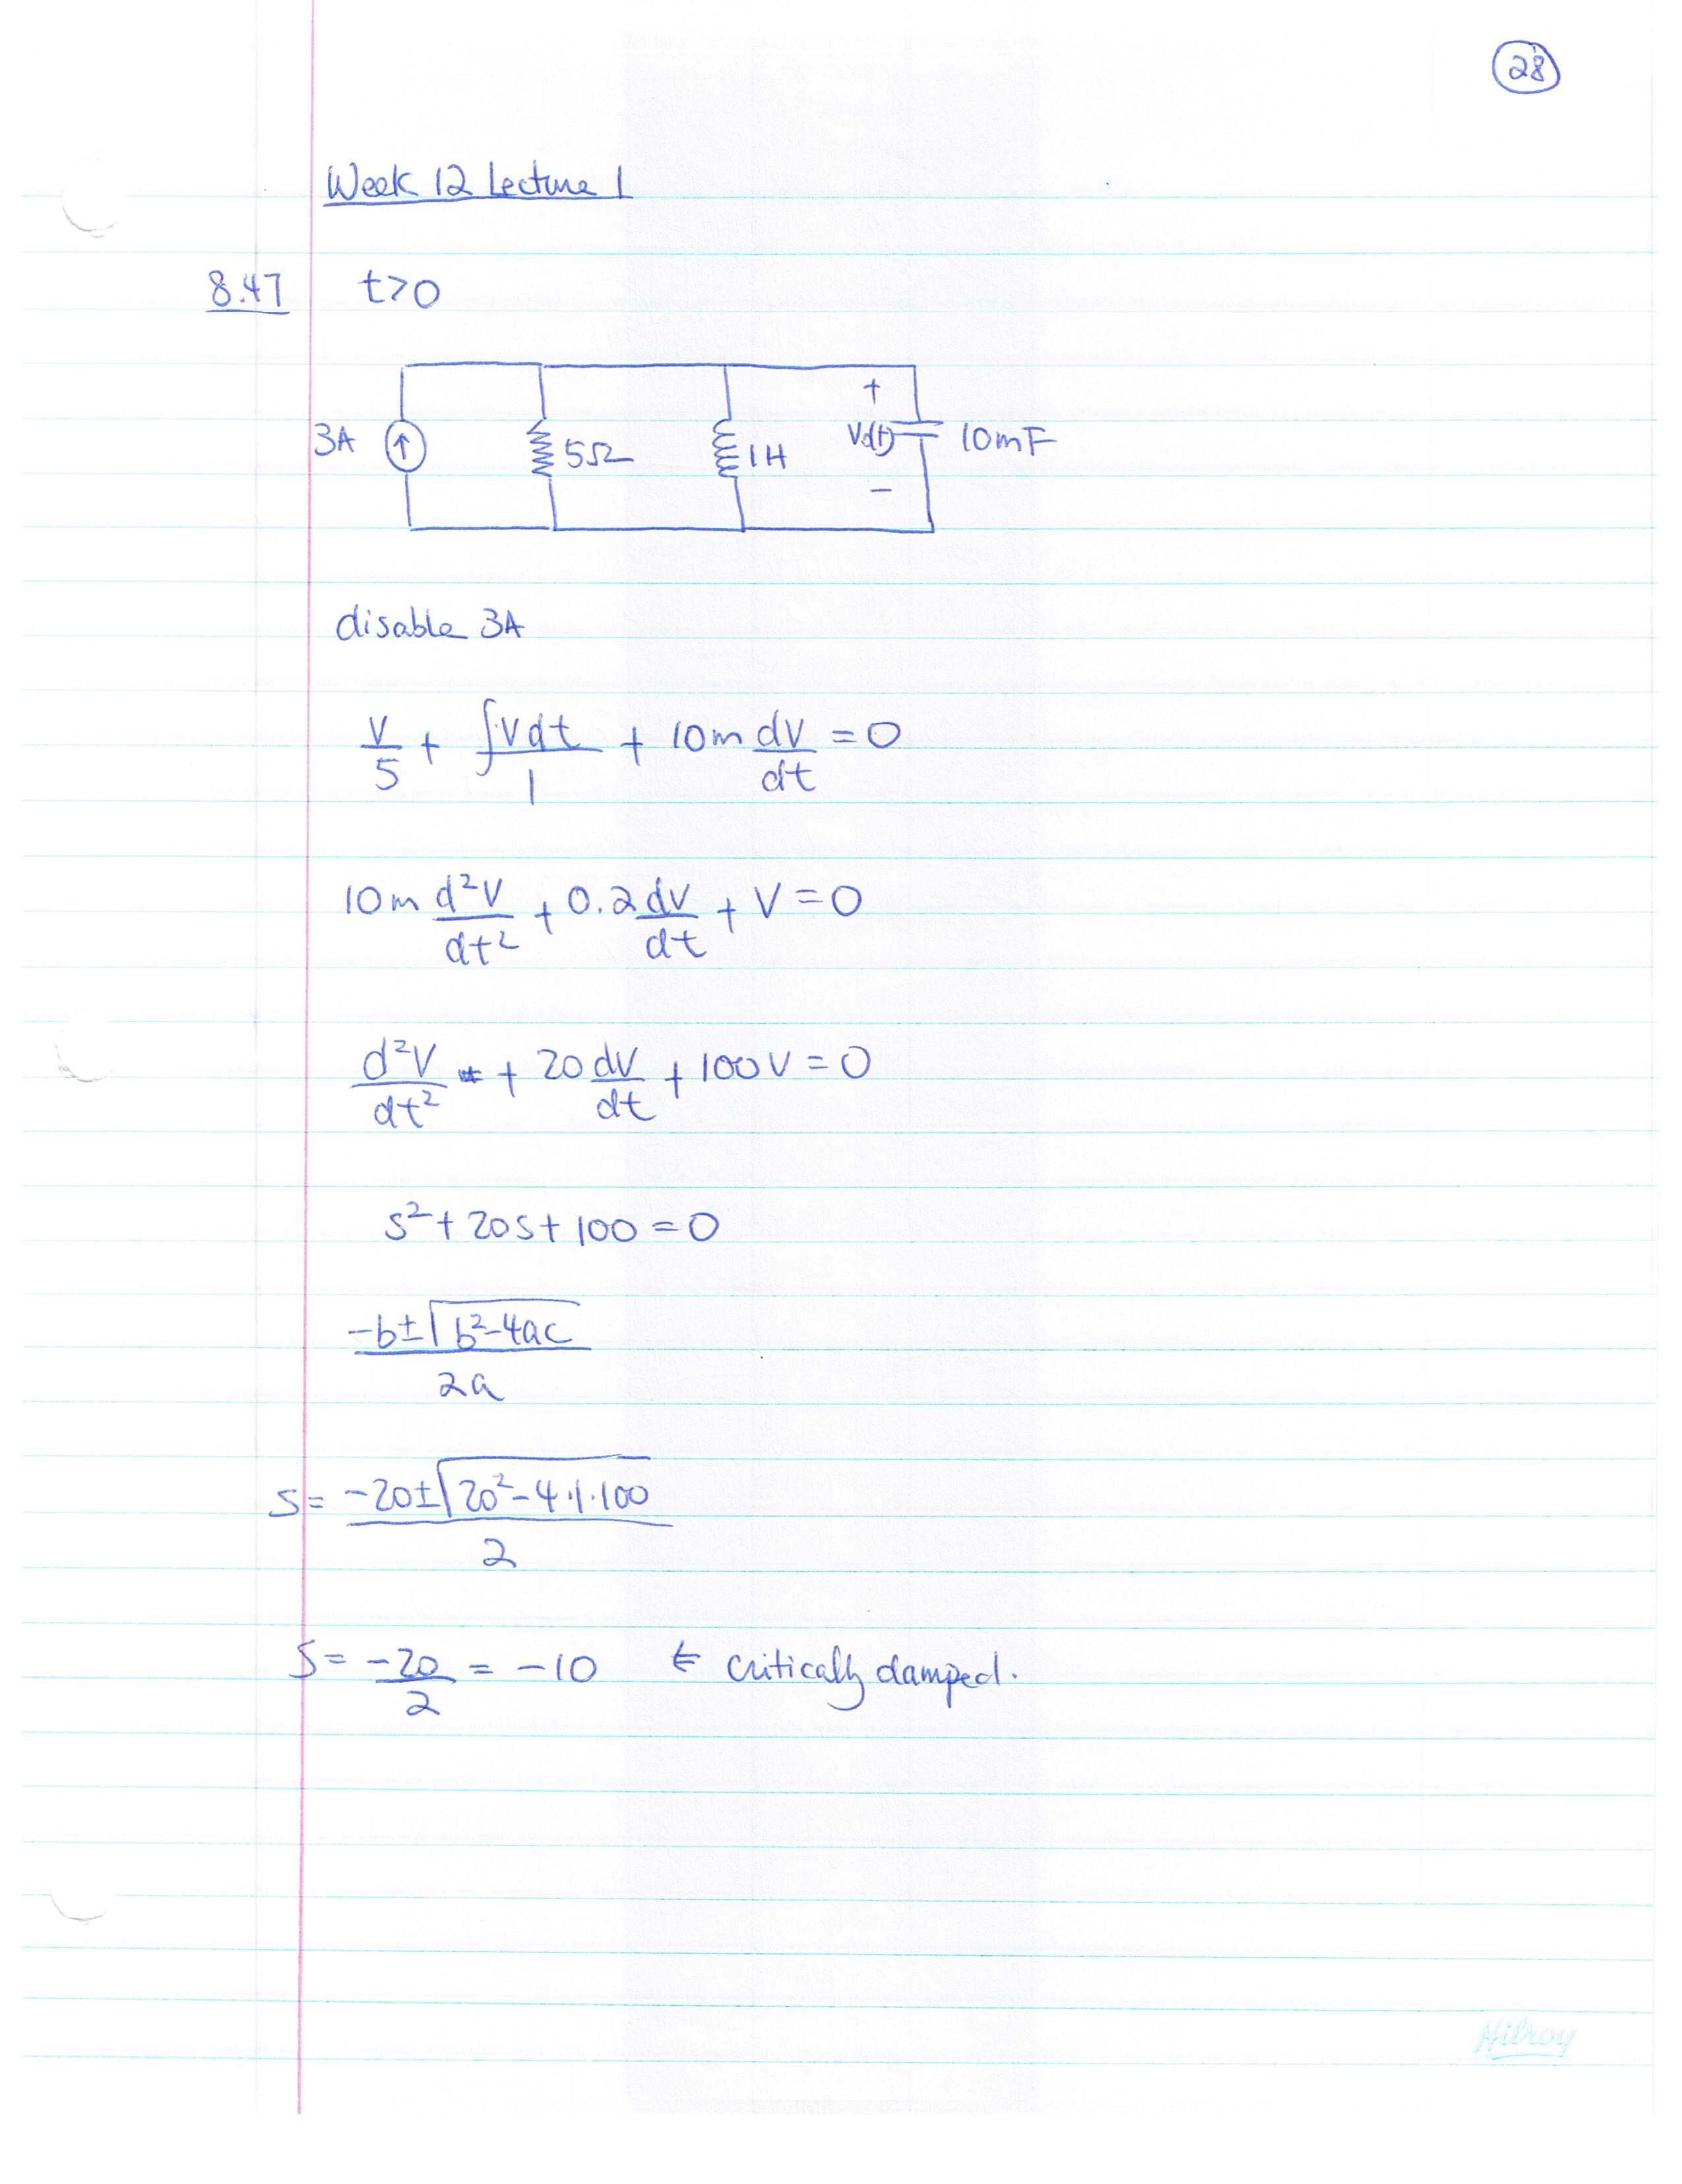 28
Week 12 Lecture 1
8.47 t>0
3A 5Ω 1H + Vo(t) − 10mF
disable 3A
V/5 + ∫Vdt/1 + 10m dV/dt = 0
10m d²V/dt² + 0.2 dV/dt + V = 0
d²V/dt² + 20 dV/dt + 100V = 0
s² + 20s + 100 = 0
-b±√(b²-4ac) / 2a
S = -20±√(20²-4·1·100) / 2
S = -20/2 = -10 ← critically damped.
Hilroy